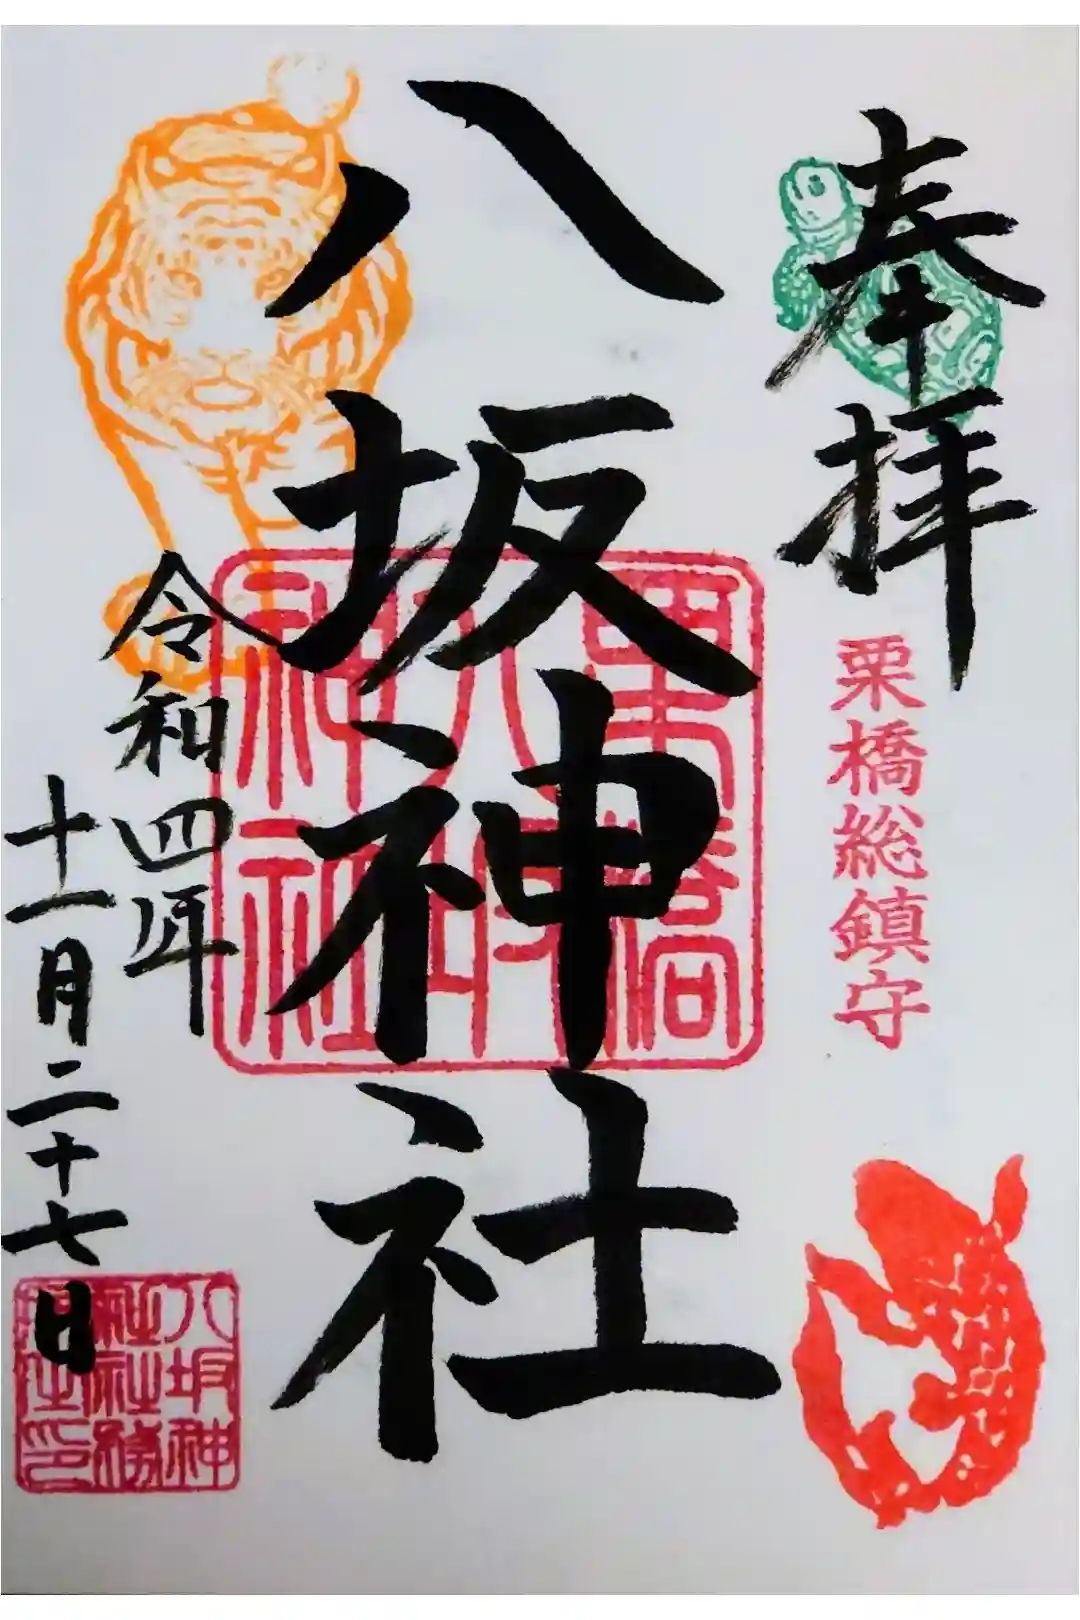 奉拝
栗橋総鎮守
八坂神社
栗橋
八坂
神社
令和四年
十一月二十七日
八坂神
社社務